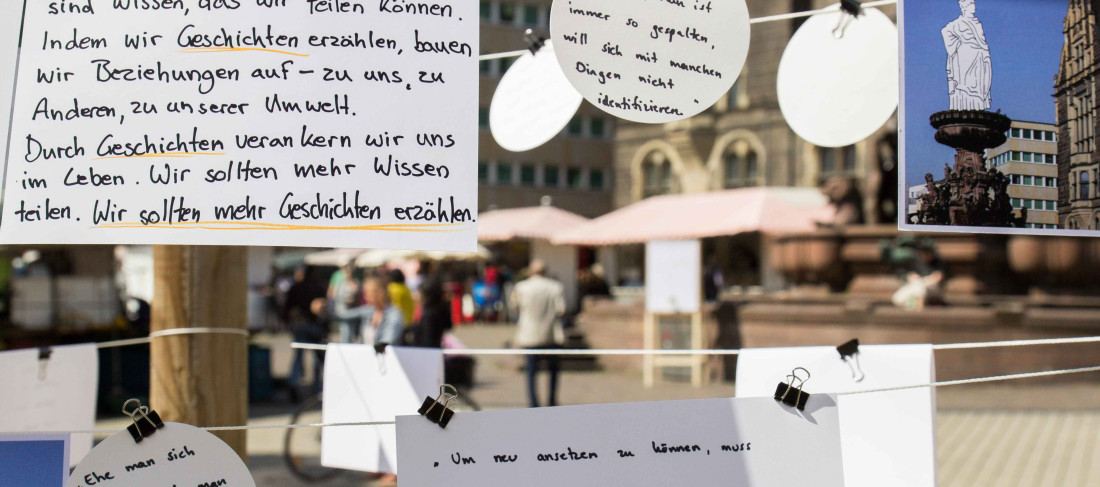 sind Wissen, das wir teilen können.
Indem wir Geschichten erzählen, bauen
wir Beziehungen auf – zu uns, zu
Anderen, zu unserer Umwelt.
Durch Geschichten verankern wir uns
im Leben. Wir sollten mehr Wissen
teilen. Wir sollten mehr Geschichten erzählen.
man ist
immer so gespalten,
will sich mit manchen
Dingen nicht
identifizieren."
"Ehe man sich
man
„Um neu ansetzen zu können, muss